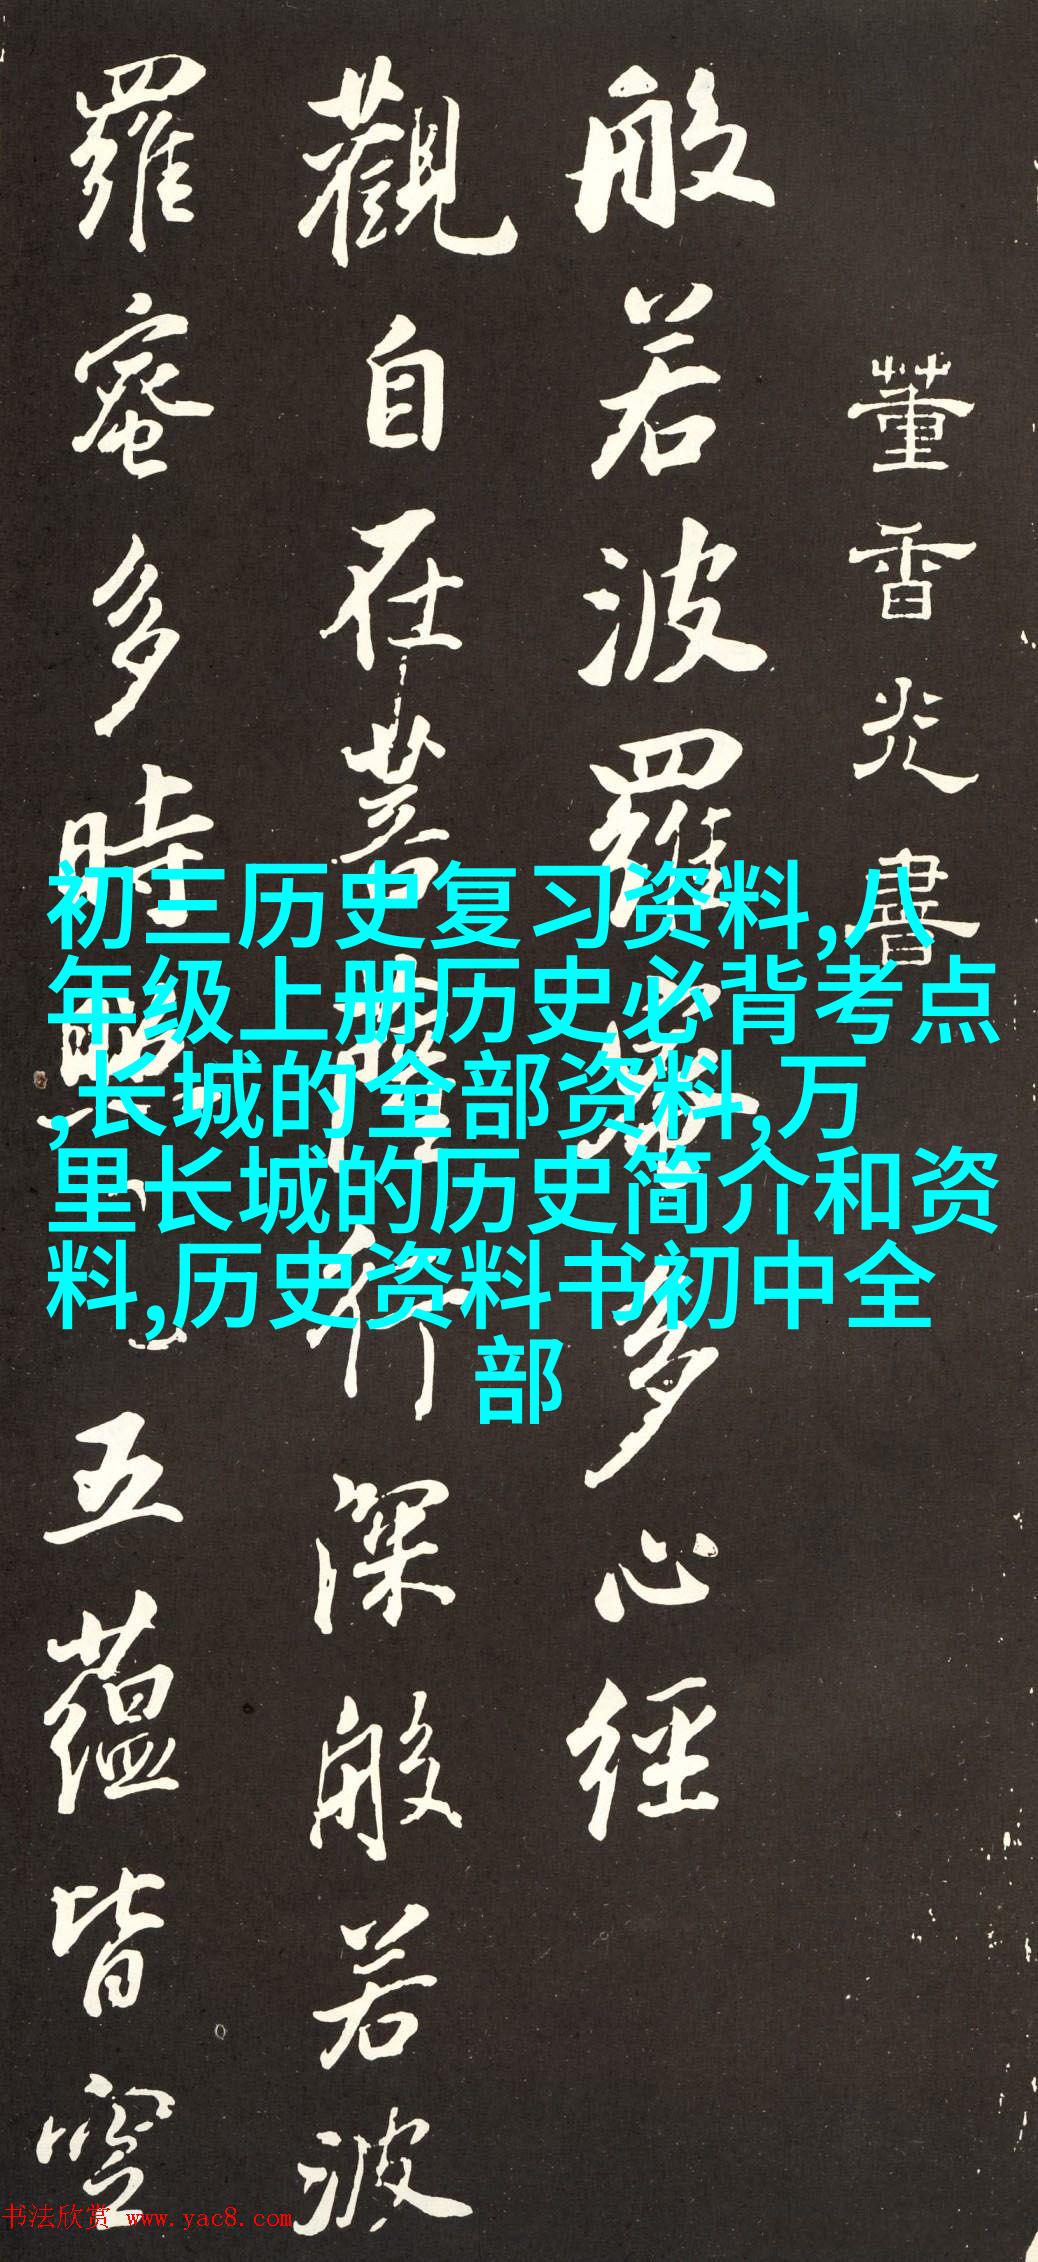 董香光書
般若波羅蜜多心經
觀自在菩薩行深般若波
羅蜜多時照見五蘊皆空
初三历史复习资料,八
年级上册历史必背考点
,长城的全部资料,万
里长城的历史简介和资
料,历史资料书初中全
部
书法欣赏 www.yac8.com